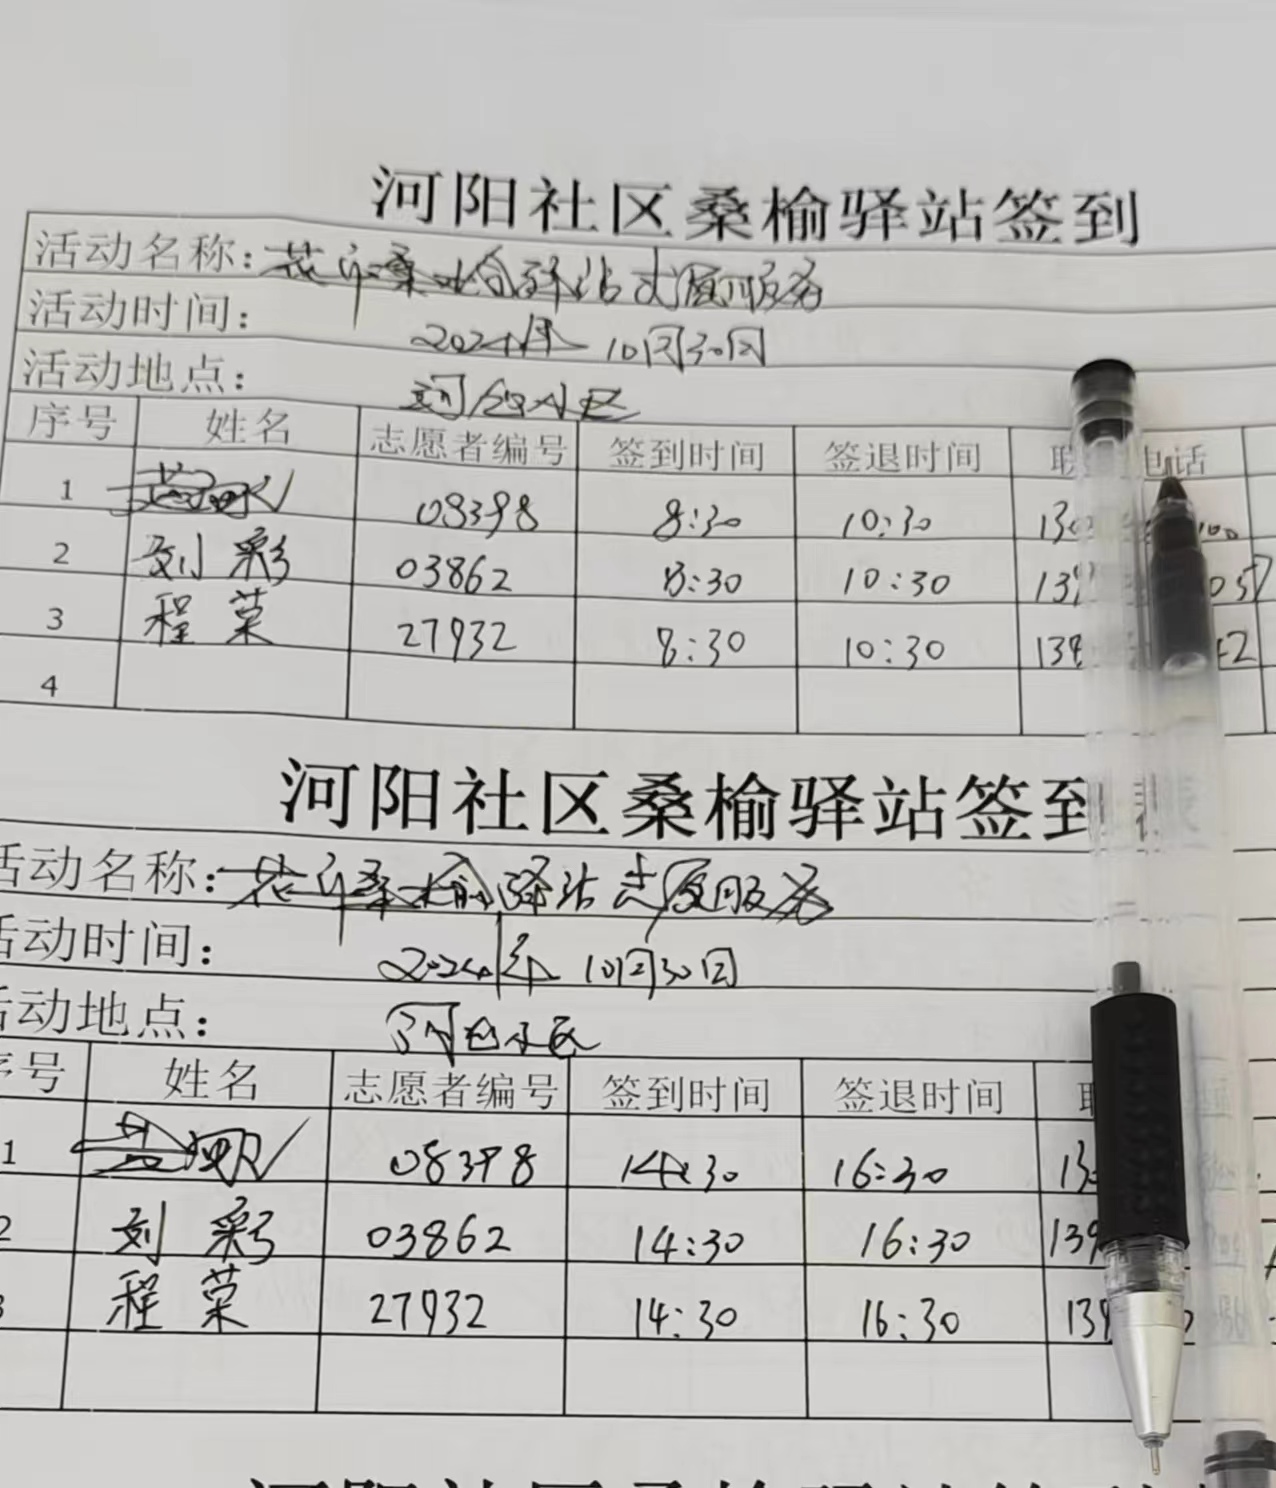 河阳社区桑榆驿站签到
活动名称: 桑榆驿站志愿服务
活动时间: 2024年10月30日
活动地点: 小区
序号 姓名 志愿者编号 签到时间 签退时间 电话
1 08398 8:30 10:30
2 刘彩 03862 8:30 10:30
3 程菜 27932 8:30 10:30
4
河阳社区桑榆驿站签到
活动名称: 桑榆驿站志愿服务
活动时间: 2024年10月30日
活动地点: 小区
号 姓名 志愿者编号 签到时间 签退时间
1 08398 14:30 16:30
2 刘彩 03862 14:30 16:30
3 程菜 27932 14:30 16:30